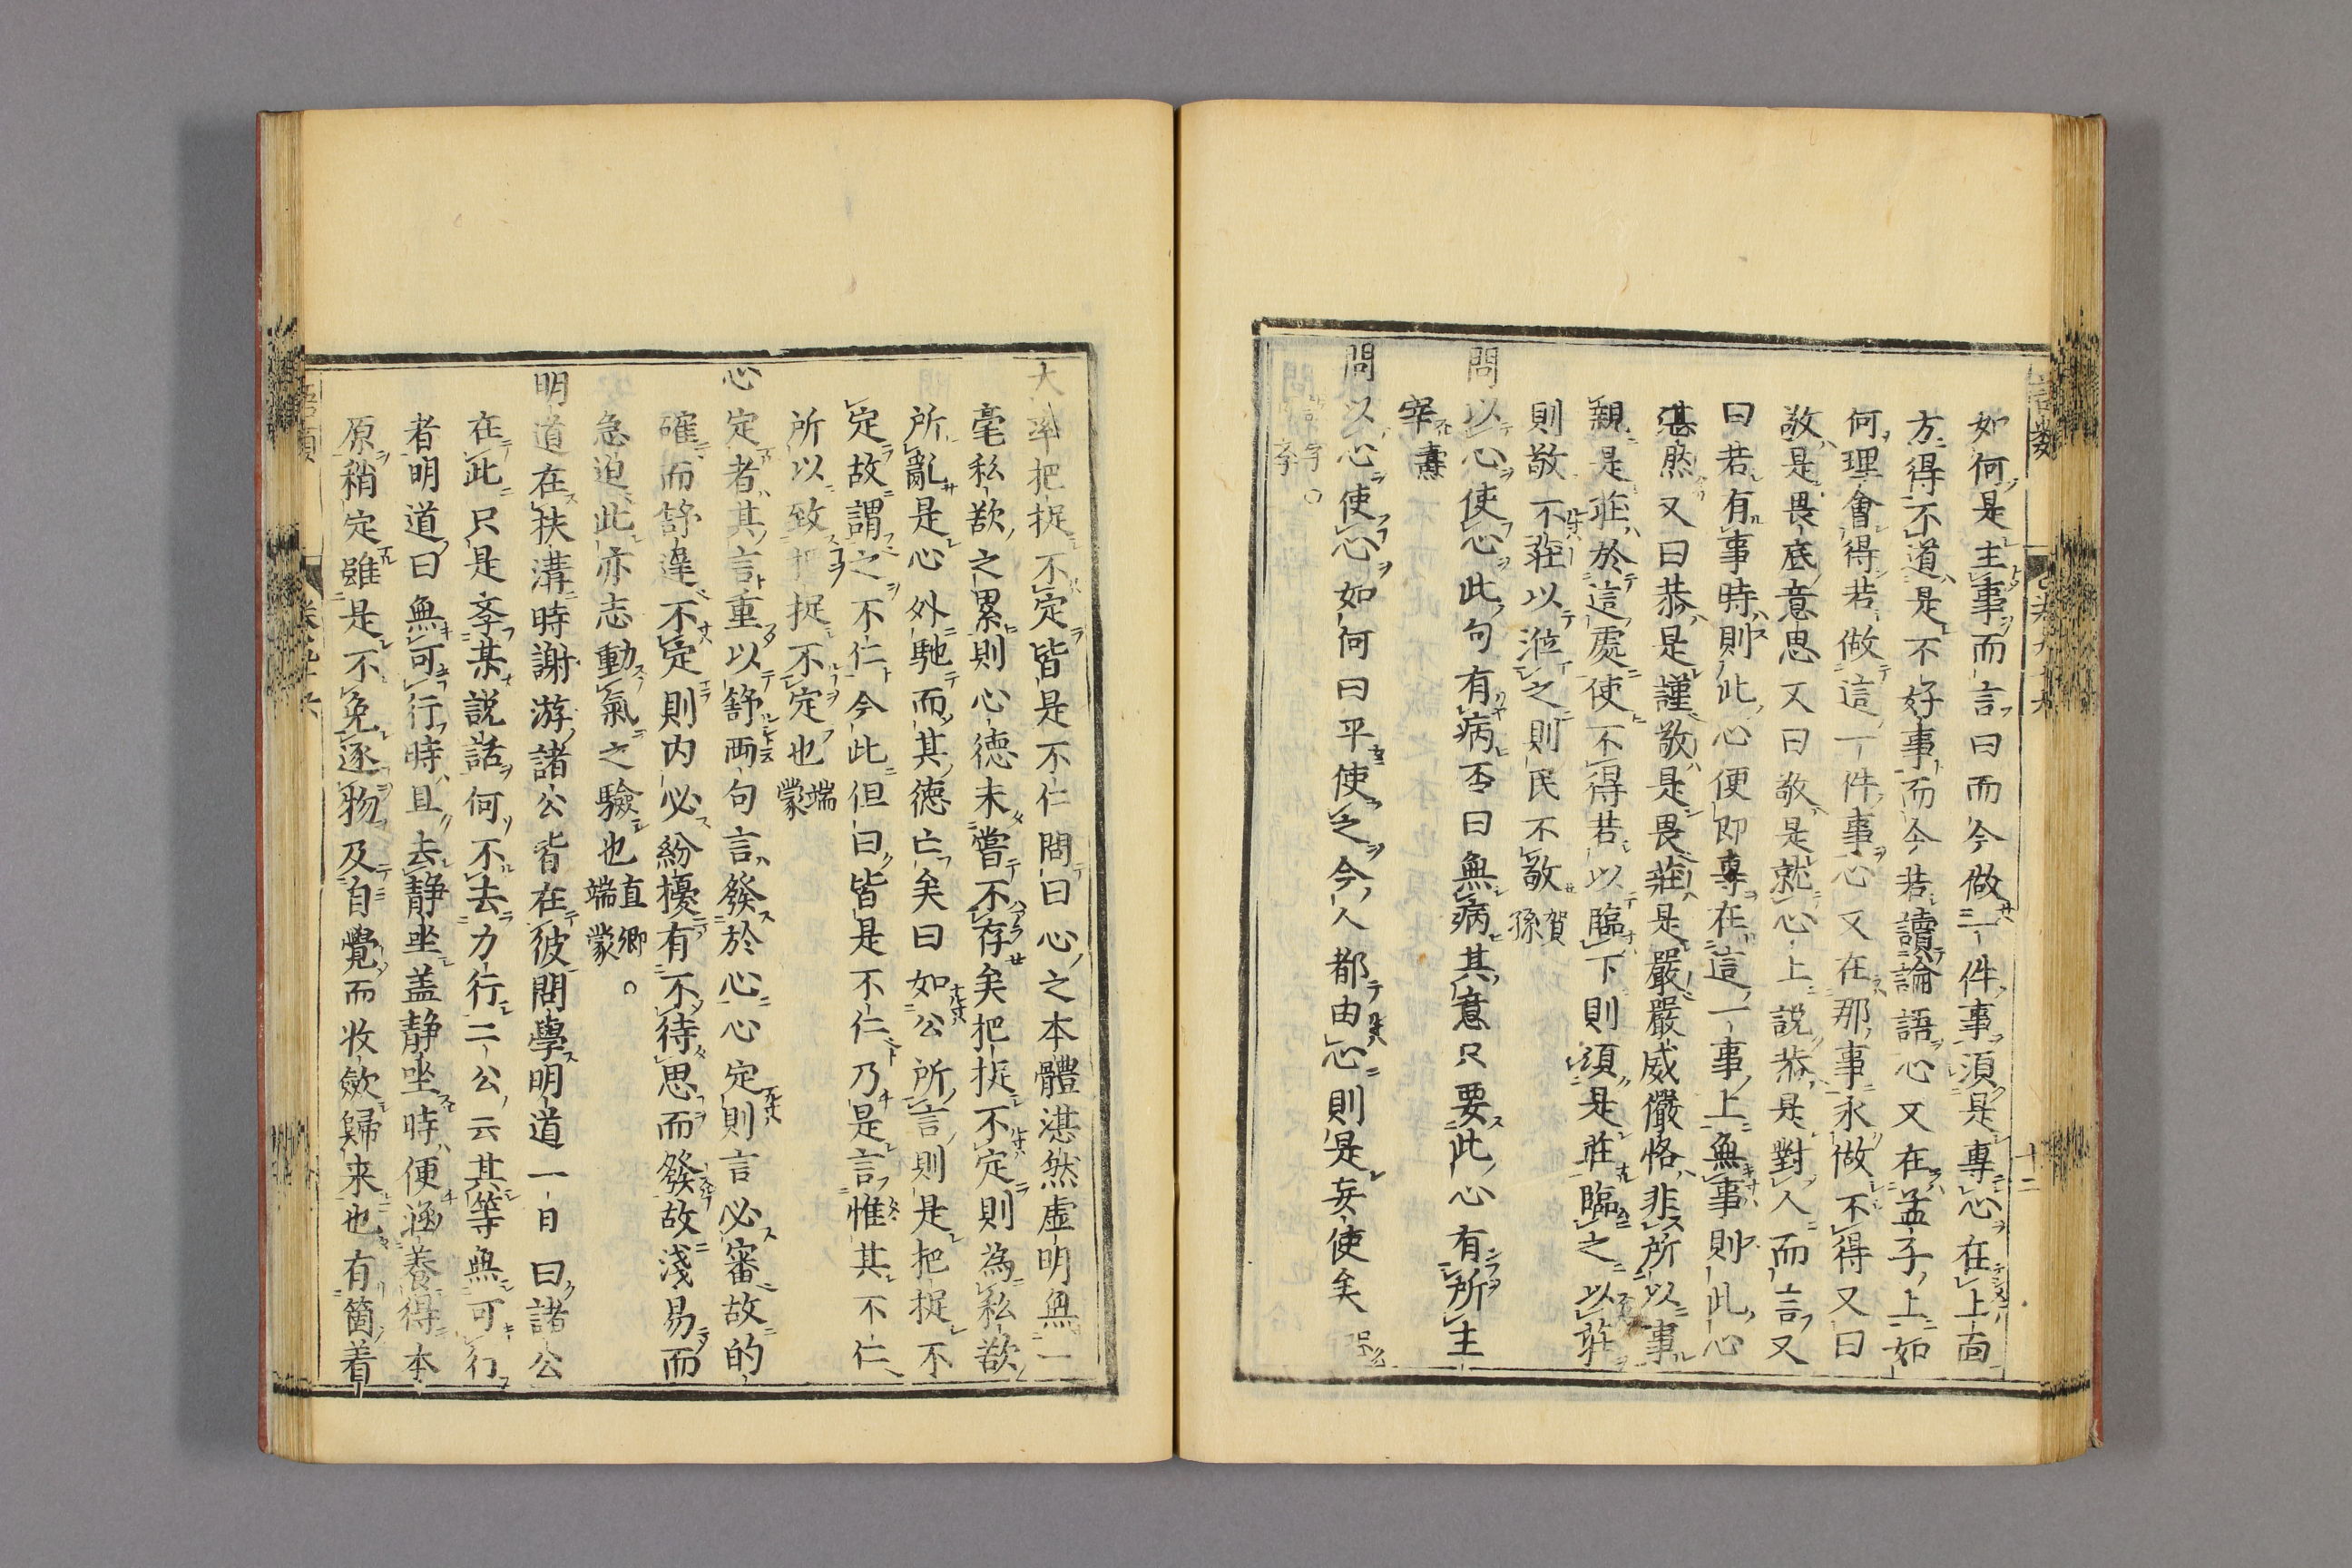 如何是主事而言曰而今做一件事須是專心在上面
方得不道是不好事而今若讀論語心又在孟子上如
何理會得若做這一件事心又在那事永做不得又曰
敬是畏底意思又曰敬是就心上說恭是對人而言又
曰若有事時則此心便即專在這一事上無事則此心
湛然又曰恭是謹敬是畏莊是嚴嚴威儼恪非所以事
親是莊於這處使不得若以臨下則須是莊臨之以莊
則敬不莊以涖之則民不敬 賀孫
問以心使心此句有病否曰無病其意只要此心有所主
宰 燾
問以心使心如何曰平使之今人都由心則是妄使矣
大率把捉不定皆是不仁問曰心之本體湛然虛明無一
毫私欲之累則心德未嘗不存矣把捉不定則為私欲
所亂是心外馳而其德亡矣曰如公所言則是把捉不
定故謂之不仁今此但曰皆是不仁乃是言惟其不仁
所以致把捉不定也 端蒙
心定者其言重以舒兩句言發於心心定則言必審故的
確而舒遲不定則内必紛擾有不待思而發故淺易而
急迫此亦志動氣之驗也 直卿端蒙○
明道在扶溝時謝游諸公皆在彼問學明道一日曰諸公
在此只是孝某說話何不去力行二公云某等無可行
者明道曰無可行時且去静坐盖静坐時便涵養得本
原稍定雖是不免逐物及自覺而收斂歸来也有箇着